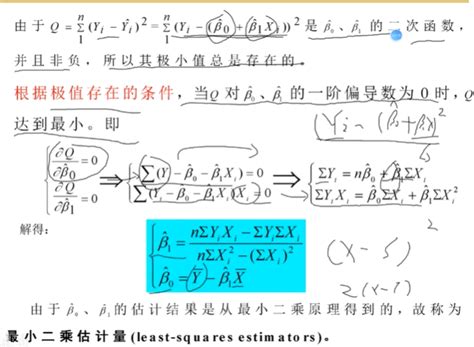 由于 Q = Σ₁ⁿ (Yᵢ − Ŷᵢ)² = Σ₁ⁿ (Yᵢ − (β̂₀ + β̂₁Xᵢ))² 是 β̂₀、β̂₁ 的二次函数，
并且非负，所以其极小值总是存在的。
根据极值存在的条件，当Q 对 β̂₀、β̂₁ 的一阶偏导数为 0 时，Q
达到最小。即
(Yᵢ − (β̂₀ + β̂₁X))²
{ ∂Q/∂β̂₀ = 0 ⇒ { Σ(Yᵢ − β̂₀ − β̂₁Xᵢ) = 0 ⇒ { ΣYᵢ = nβ̂₀ + β̂₁ΣXᵢ
{ ∂Q/∂β̂₁ = 0 { Σ(Yᵢ − β̂₀ − β̂₁Xᵢ)Xᵢ = 0 { ΣYᵢXᵢ = β̂₀ΣXᵢ + β̂₁ΣXᵢ²
解得：
{ β̂₁ = (nΣYᵢXᵢ − ΣYᵢΣXᵢ) / (nΣXᵢ² − (ΣXᵢ)²)
{ β̂₀ = Ȳ − β̂₁X̄
(x − 5)²
由于 β̂₀、β̂₁ 的估计结果是从最小二乘原理得到的，故称为
最小二乘估计量 (least-squares estimators)。